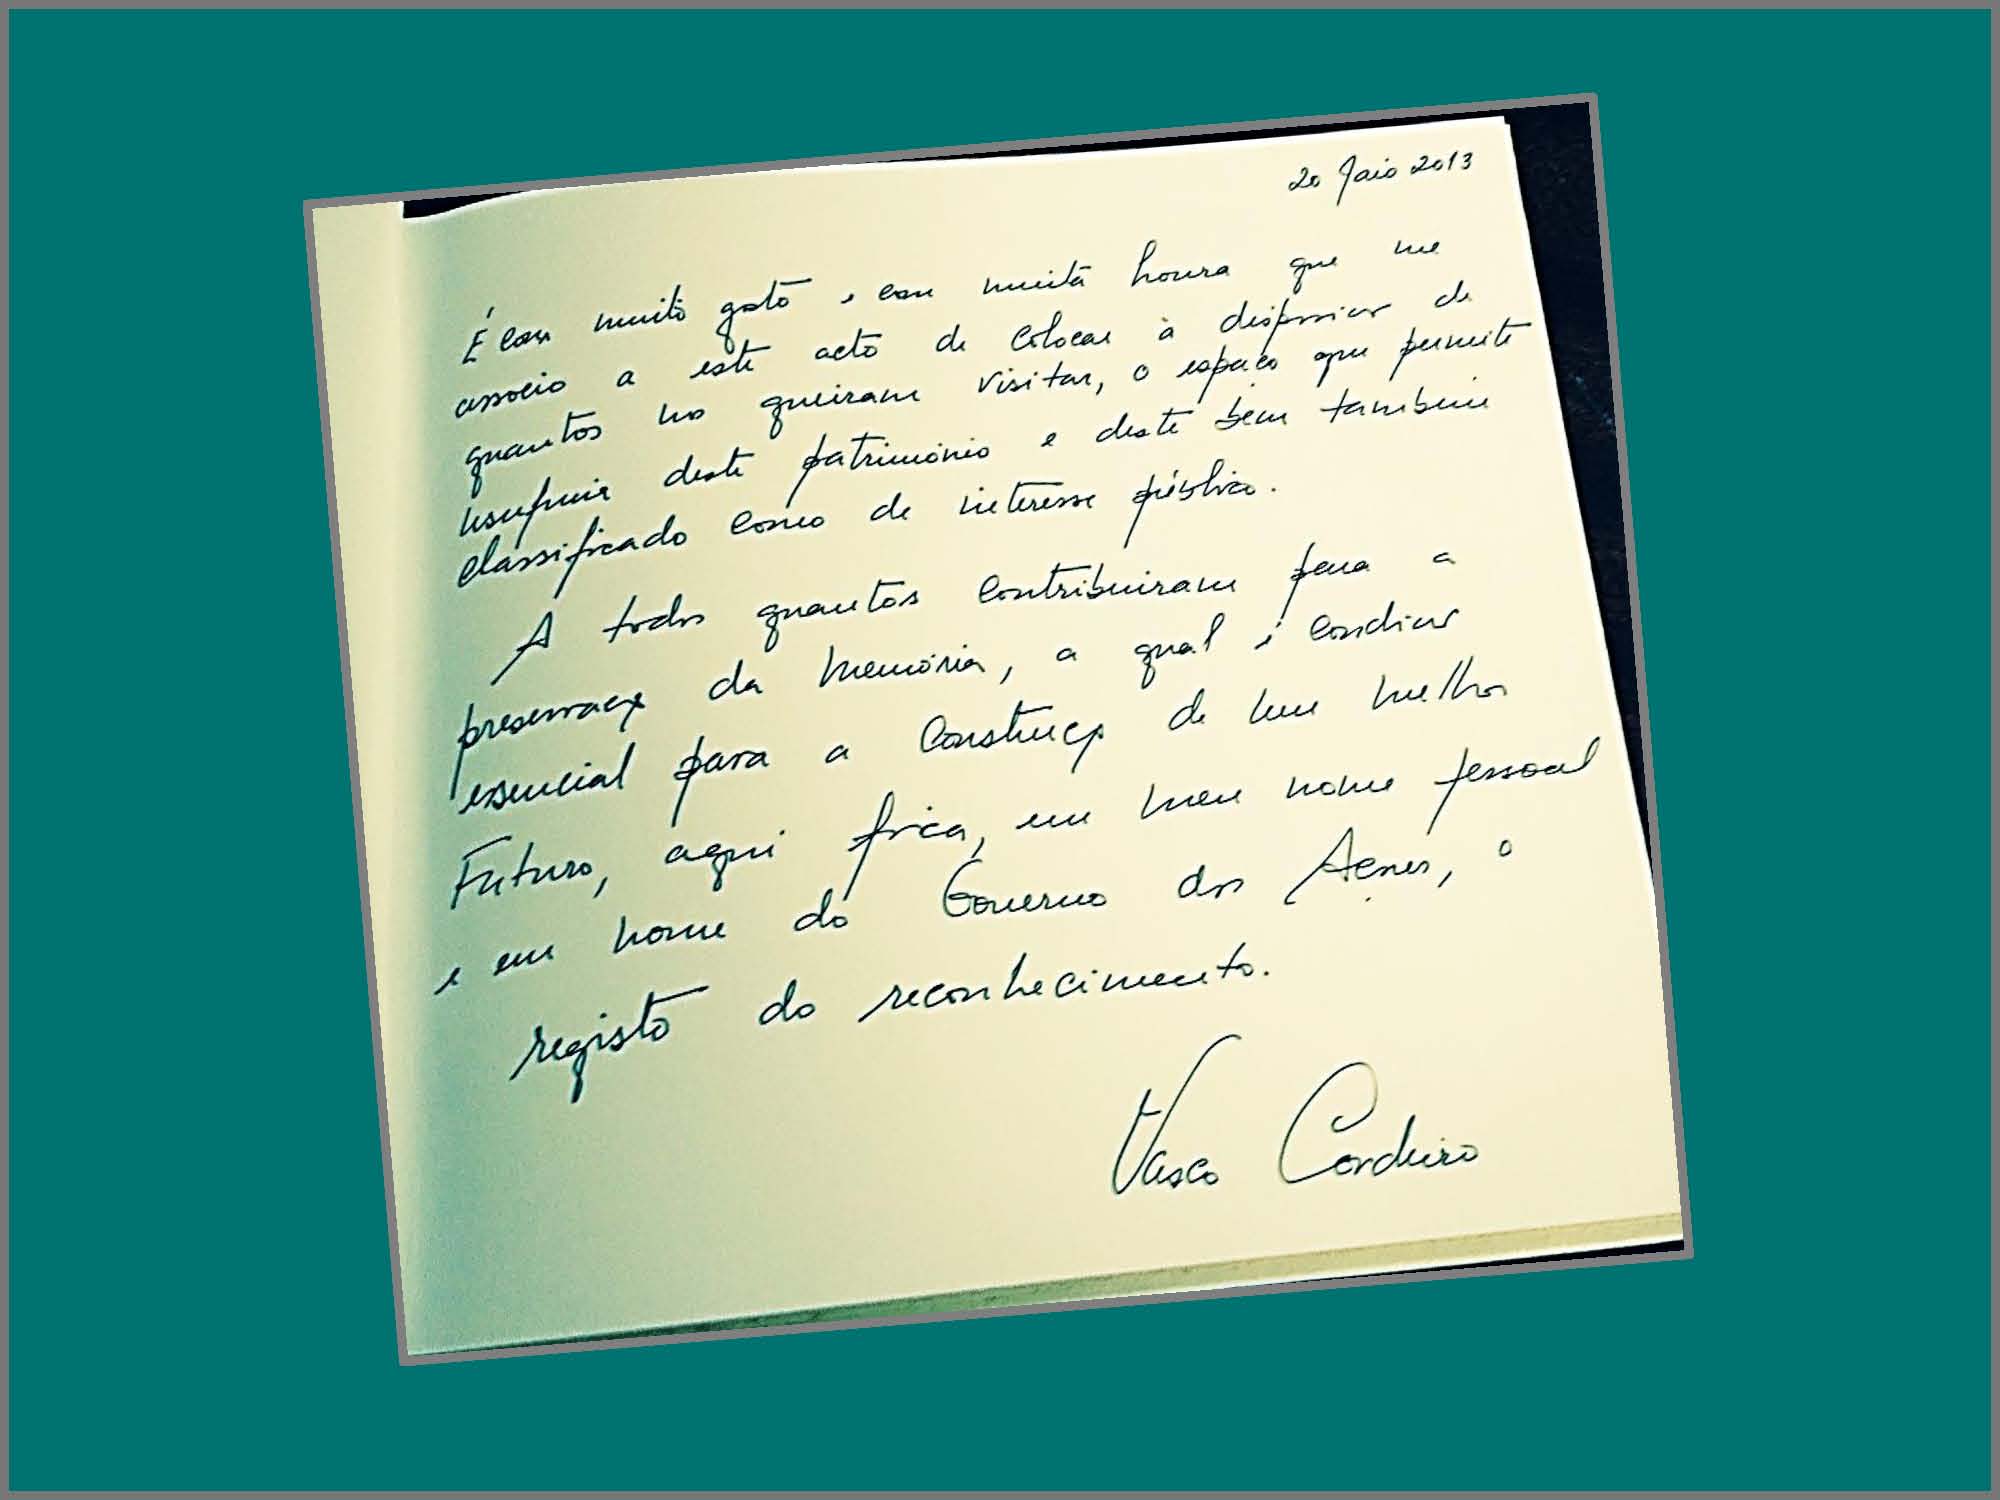 20 Maio 2013
É com muito gosto e com muita honra que me
associo a este acto de colocar à disposição de
quantos no queiram visitar, o espaço que permite
usufruir deste património e deste bem também
classificado como de interesse público.
A todos quantos contribuiram para a
preservação da memória, a qual é condição
essencial para a construção de um melhor
Futuro, aqui fica, em meu nome pessoal
e em nome do Governo dos Açores, o
registo do reconhecimento.
Vasco Cordeiro